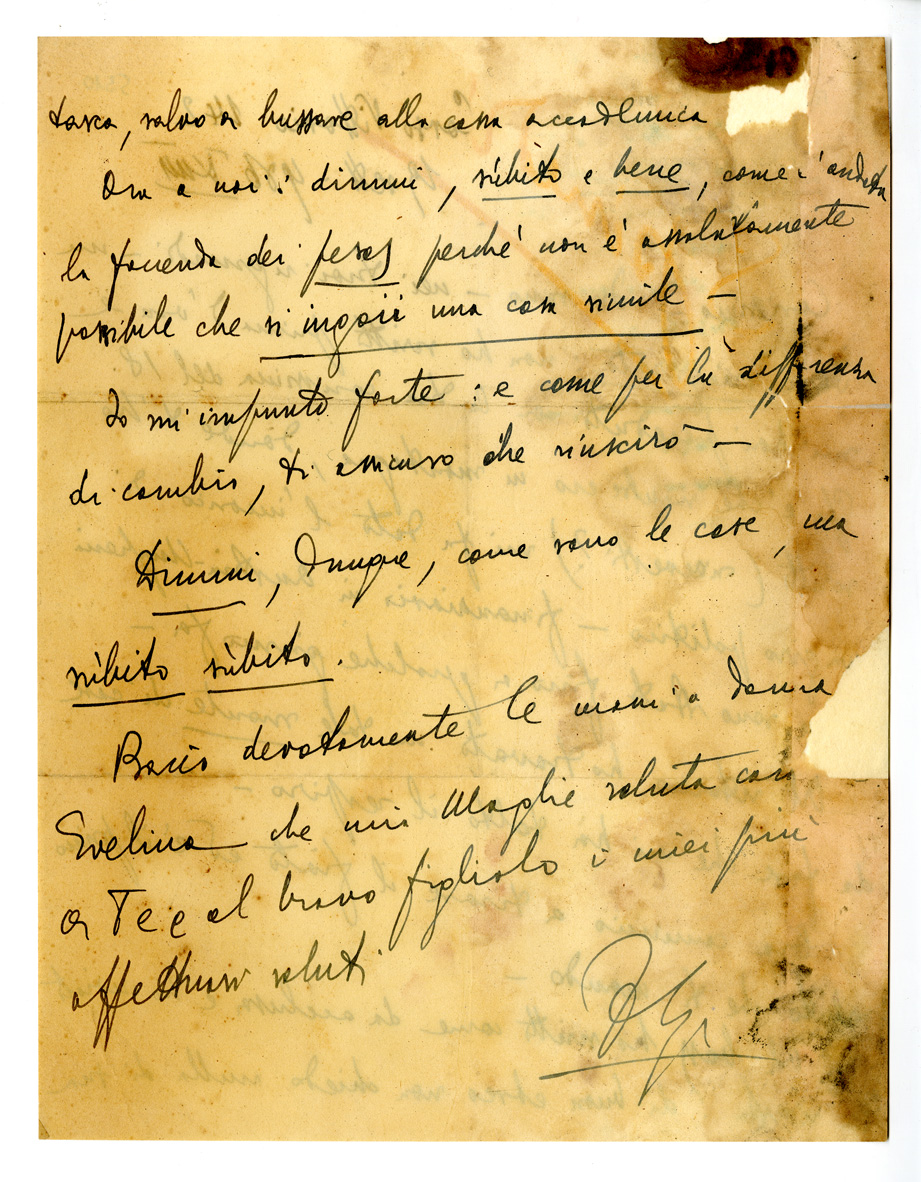 tasca, salvo a bussare alla cassa accademica
Ora a noi: dimmi, sùbito e bene, come è andata
la facenda dei pesos perché non é assolutamente
possibile che si ingoii una cosa simile –
Io mi impunto forte: e come per la differenza
di cambio, ti assicuro che riuscirò –
Dimmi, dunque, come sono le cose, ma
sùbito sùbito.
Bacio devotamente le mani a donna
Evelina che mia Moglie saluta con
a Te e al bravo figliolo i miei più
affettuosi saluti